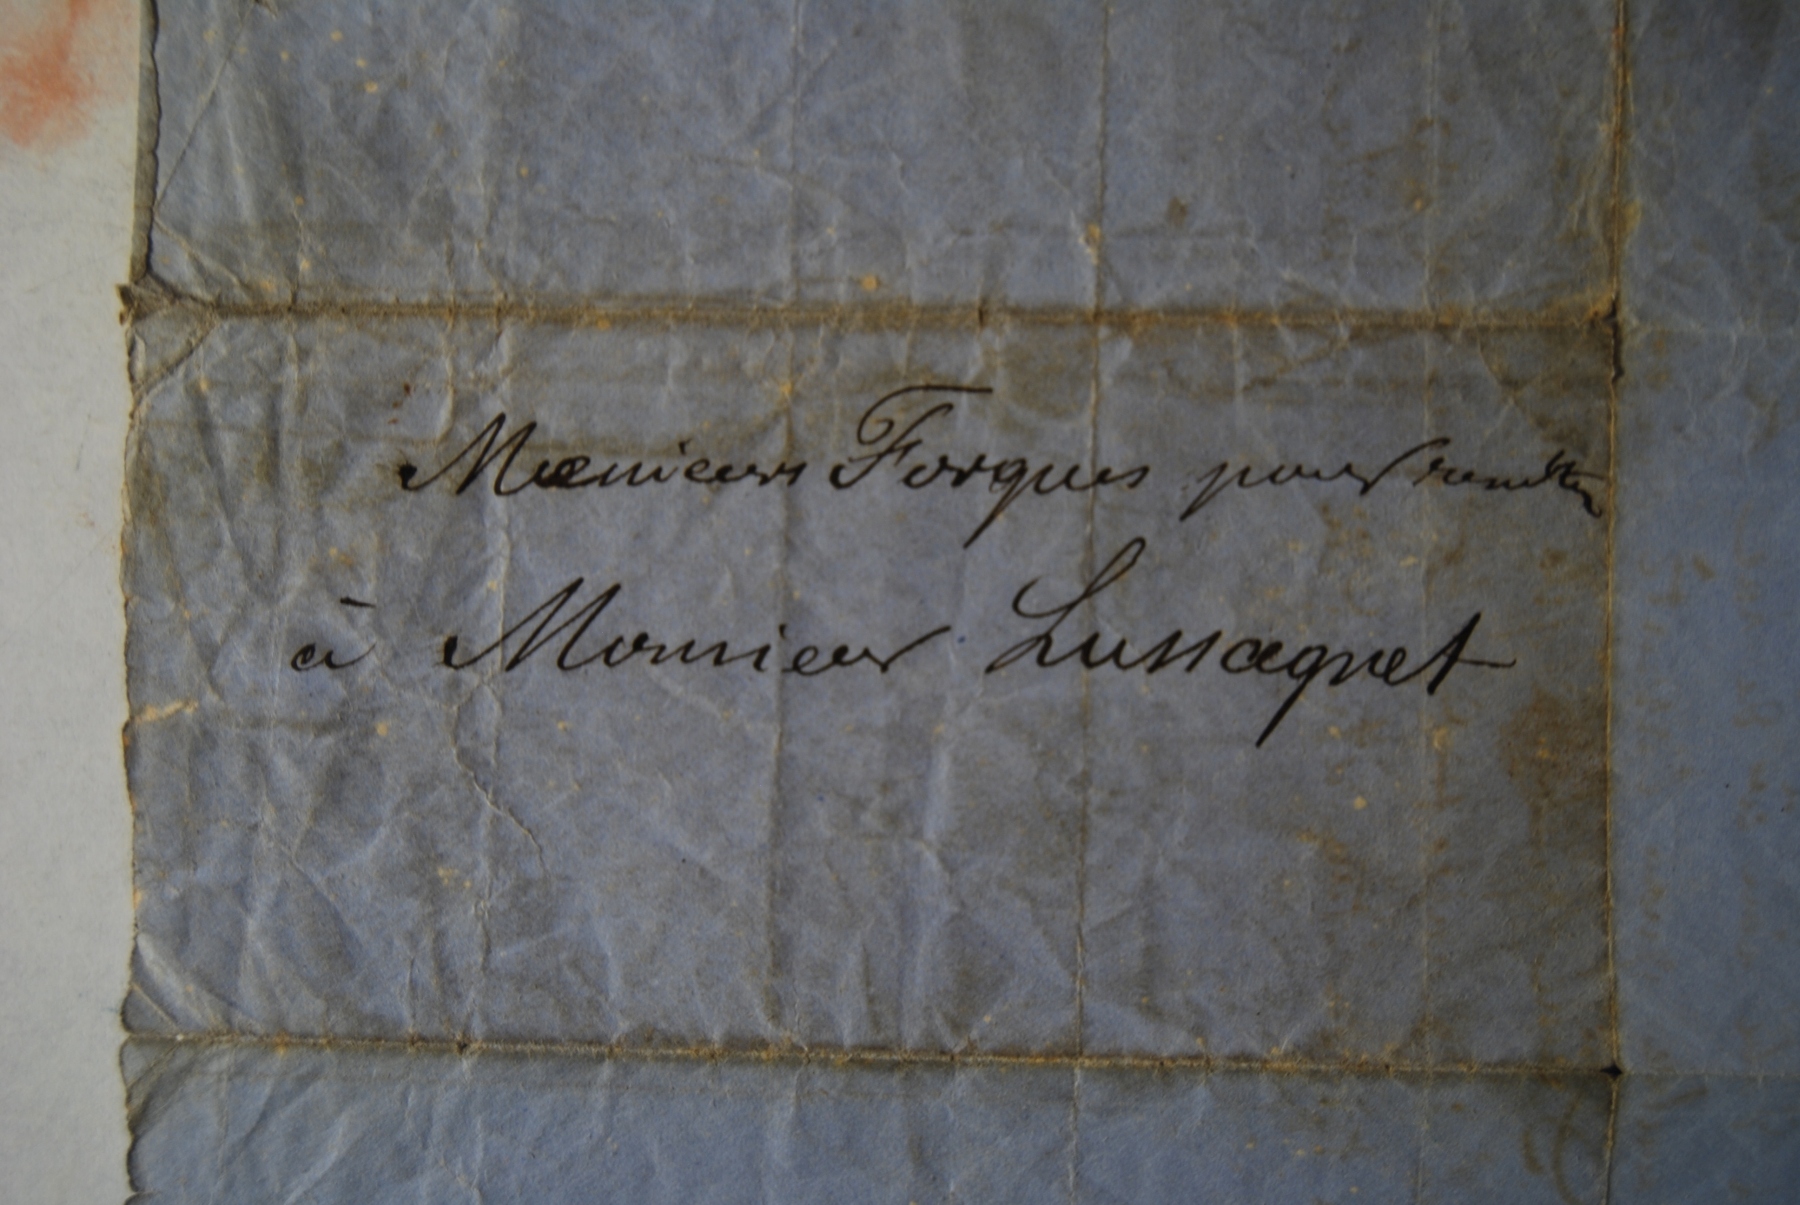 Monsieurs Forques pour remettre
à Monsieur Lussagnet